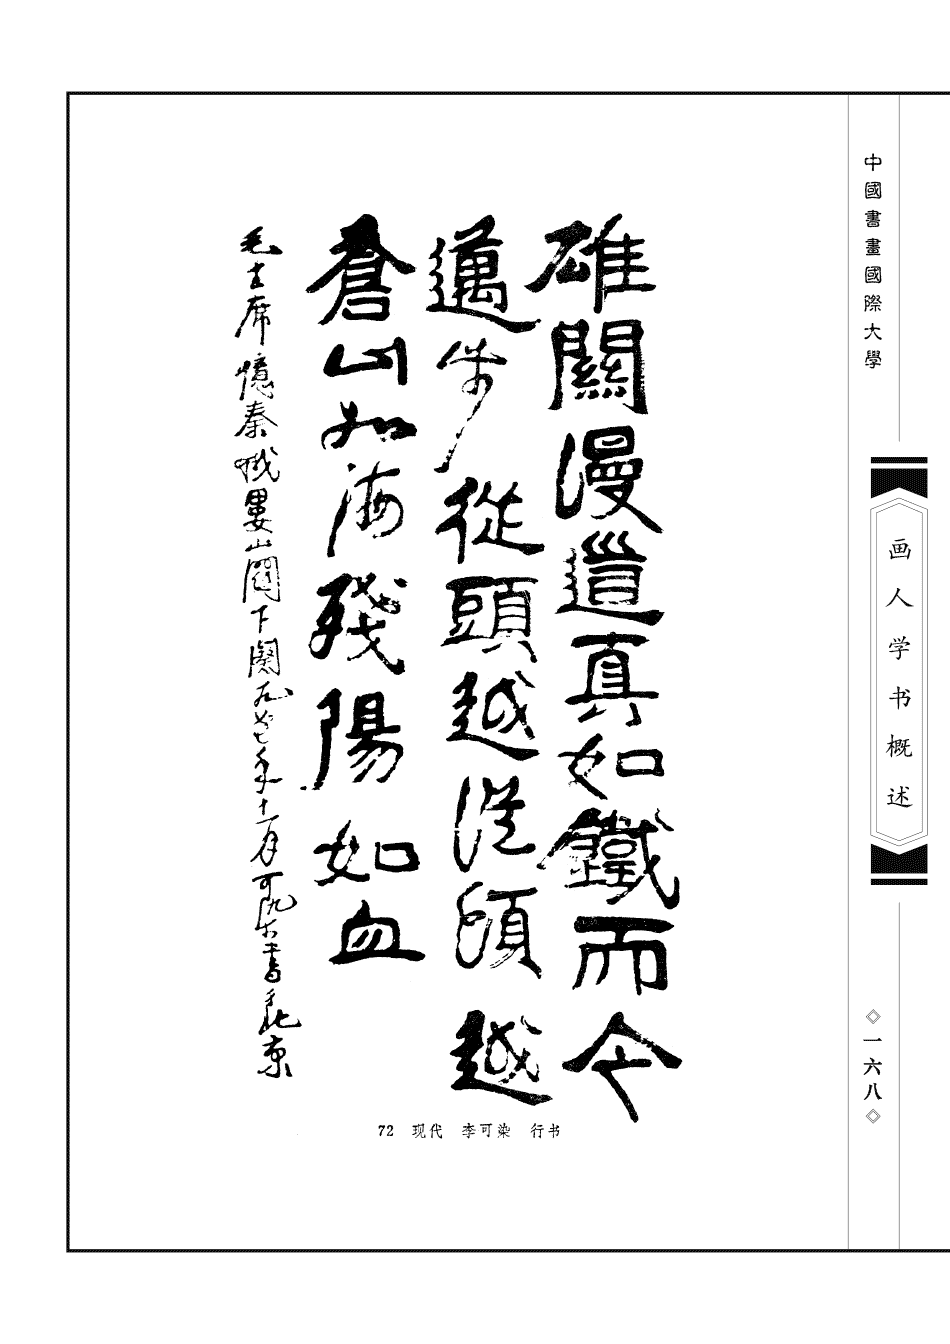 中國書畫國際大學
画人学书概述
◇一六八◇
雄關漫道真如鐵而今
邁步從頭越從頭越
蒼山如海殘陽如血
毛主席憶秦娥婁山關下闋一九七七年十一月可染書北京
72 现代 李可染 行书